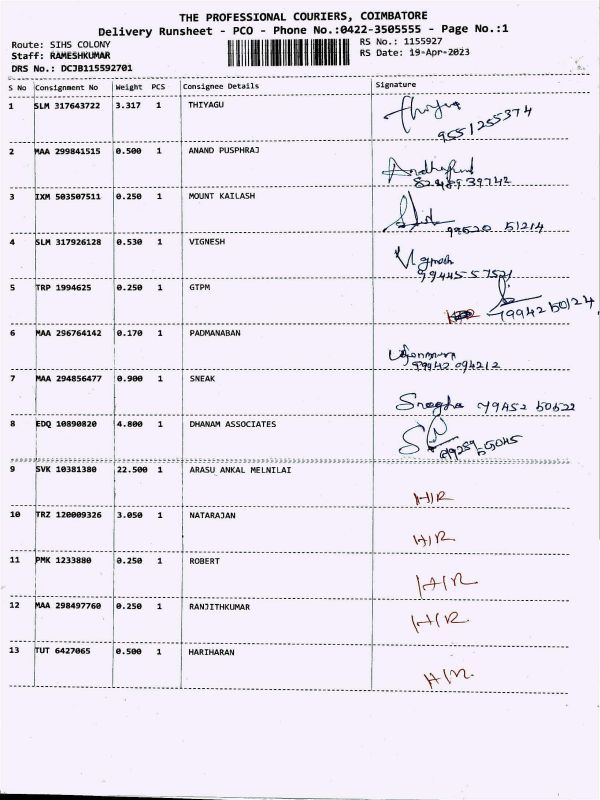 THE PROFESSIONAL COURIERS, COIMBATORE
Delivery Runsheet - PCO - Phone No.:0422-3505555 - Page No.:1
Route: SIHS COLONY RS No.: 1155927
Staff: RAMESHKUMAR RS Date: 19-Apr-2023
DRS No.: DCJB115592701
S No Consignment No Weight PCS Consignee Details Signature
1 SLM 317643722 3.317 1 THIYAGU
9551255374
2 MAA 299841515 0.500 1 ANAND PUSPHRAJ
3 IXM 503507511 0.250 1 MOUNT KAILASH
99520 51214
4 SLM 317926128 0.530 1 VIGNESH
Vignesh
99445 57521
5 TRP 1994625 0.250 1 GTPM
79942 50124
6 MAA 296764142 0.170 1 PADMANABAN
99942 094212
7 MAA 294856477 0.900 1 SNEAK
Snegha 79452 50522
8 EDQ 10890820 4.800 1 DHANAM ASSOCIATES
9 SVK 10381380 22.500 1 ARASU ANKAL MELNILAI
H/R
10 TRZ 120009326 3.050 1 NATARAJAN
H/R
11 PMK 1233880 0.250 1 ROBERT
H/R
12 MAA 298497760 0.250 1 RANJITHKUMAR
H/R
13 TUT 6427065 0.500 1 HARIHARAN
H/R